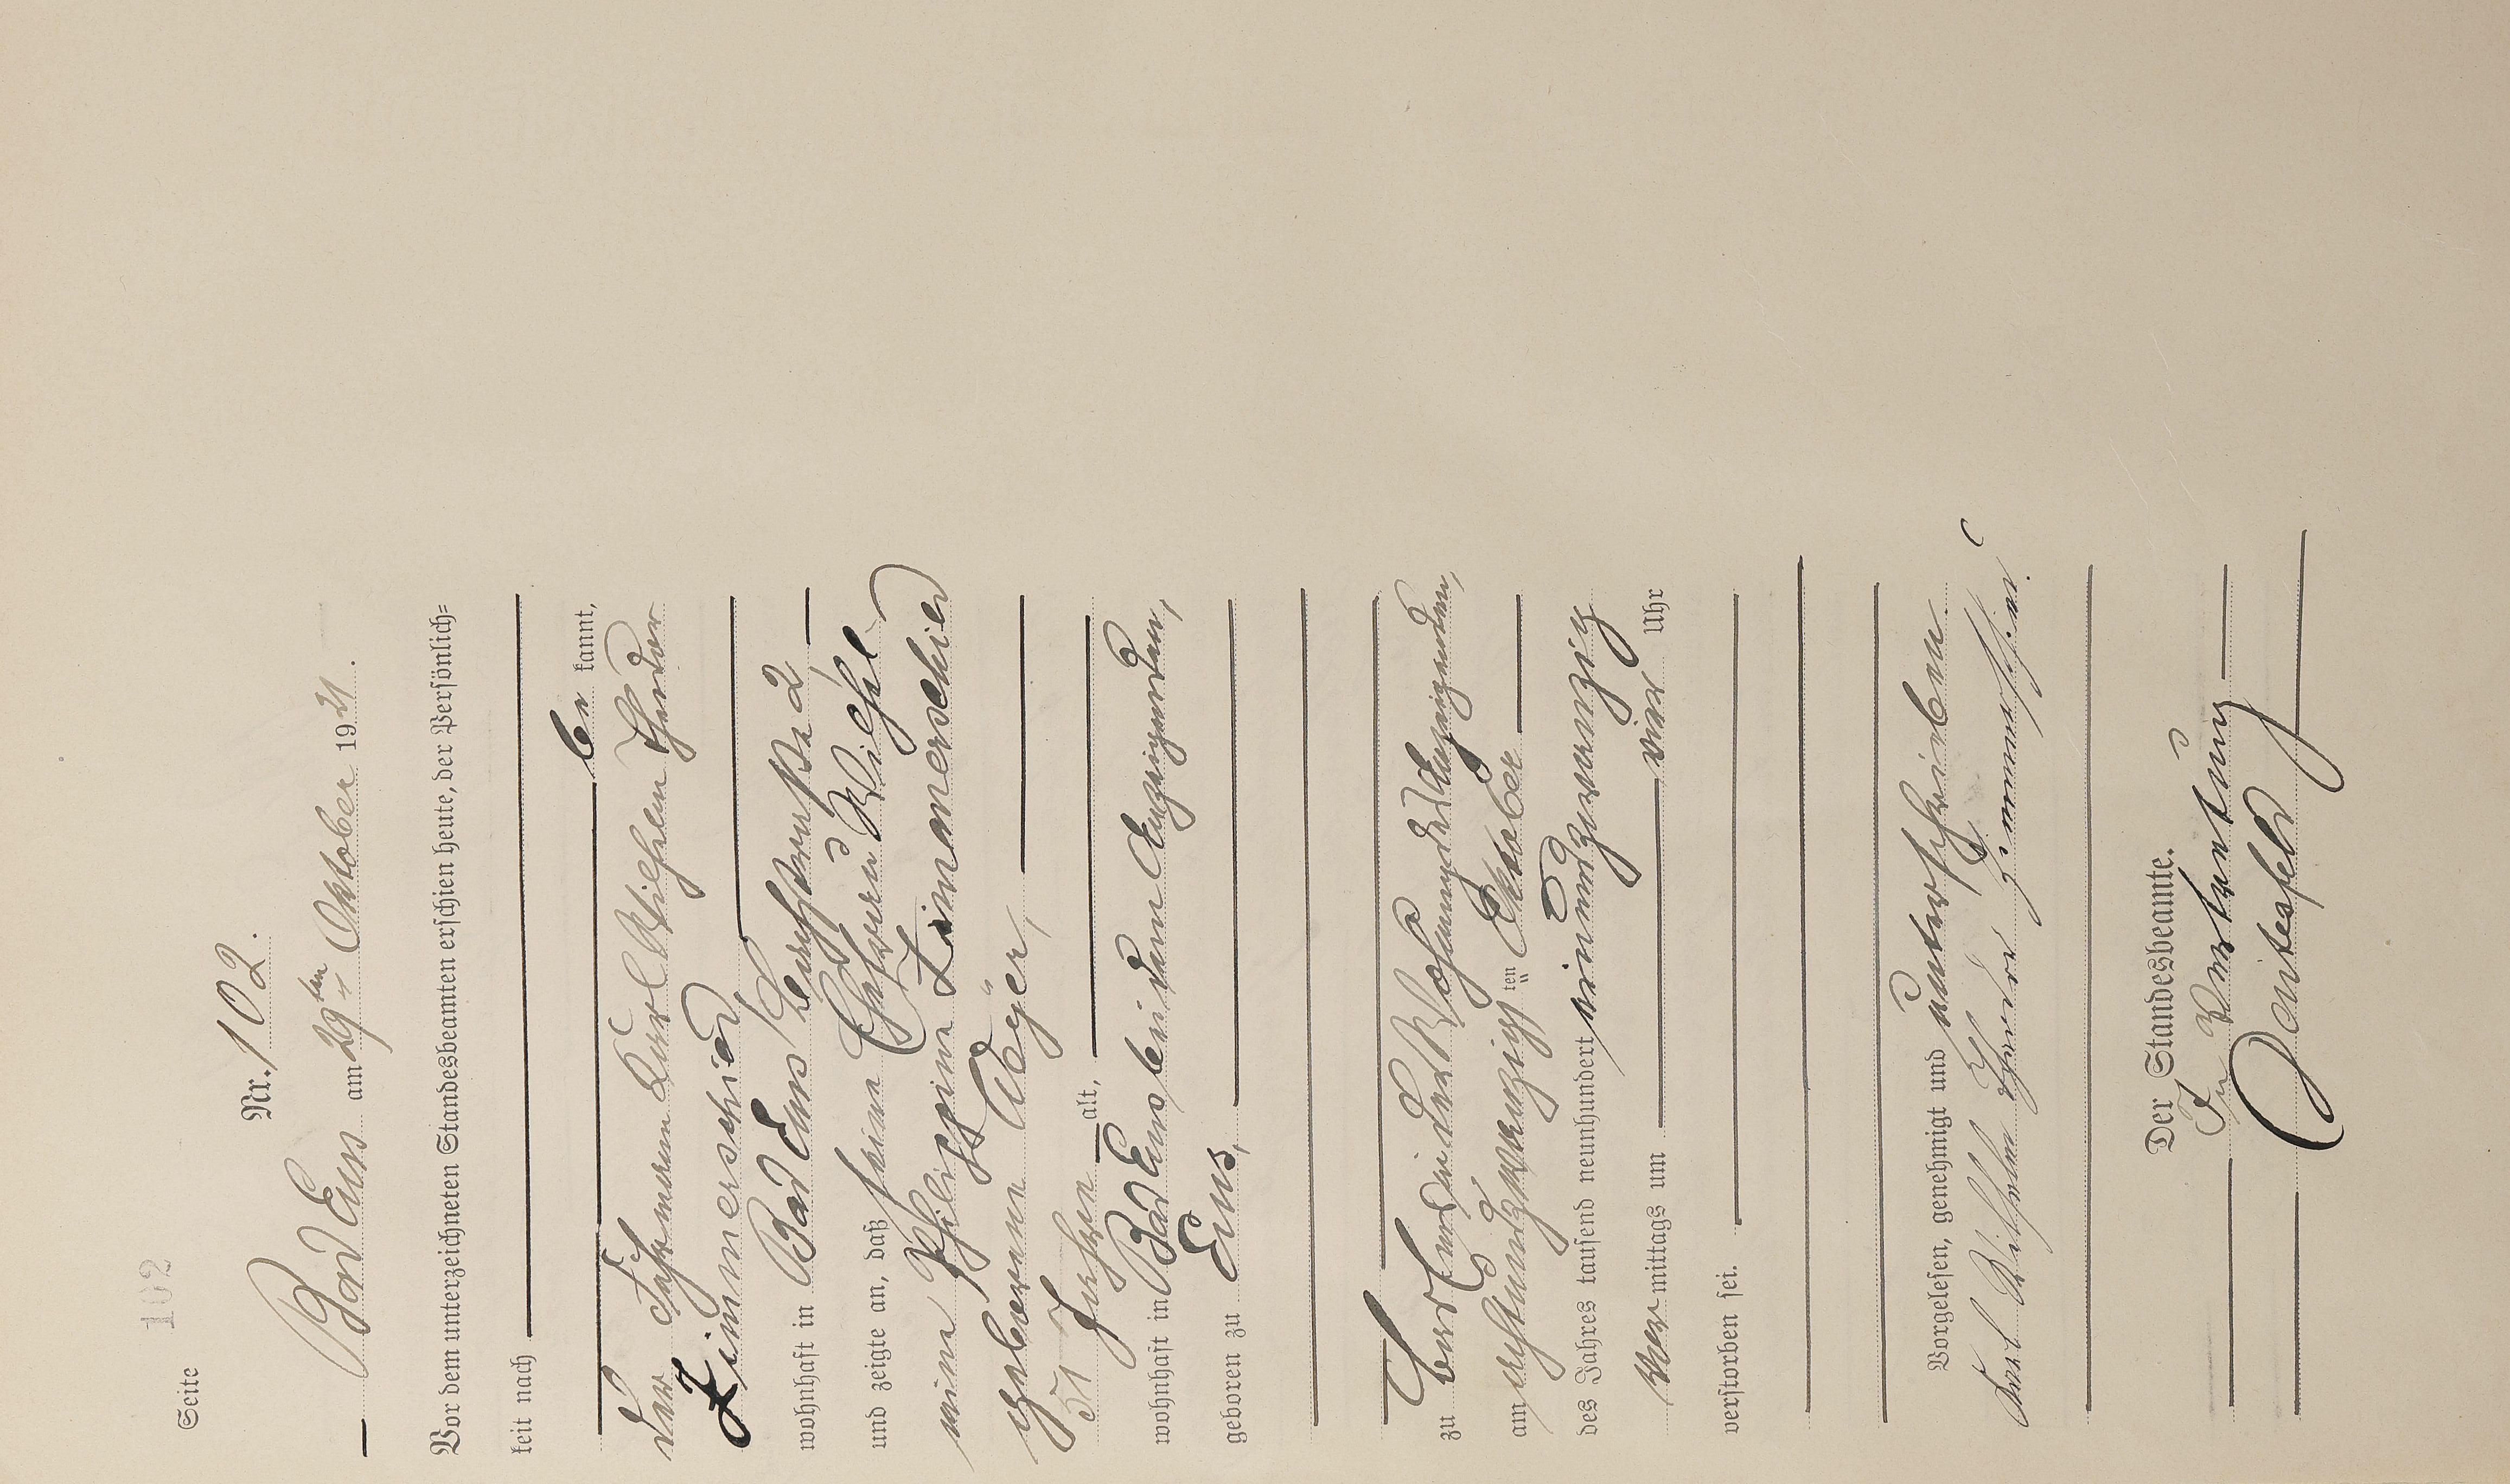 102
Seite
Nr. 102.
Bad Ems am 29ten Oktober 1921.
Vor dem unterzeichneten Standesbeamten erschien heute, der Persönlich=
keit nach
be kannt,
der Fuhrmann Karl Wilhelm Theodor
Zimmerschied
wohnhaft in Bad Ems, 2,
und zeigte an, daß seine Ehefrau
Philippine Zimmerschied
geborene
51 Jahre alt,
wohnhaft in Bad Ems bei dem Anzeigenden,
geboren zu Ems,
zu Bad Ems in der Wohnung des Anzeigenden,
am achtundzwanzigsten Oktober
des Jahres tausend neunhundert einundzwanzig
Vor mittags um vier Uhr
verstorben sei.
Vorgelesen, genehmigt und unterschrieben
Karl Wilhelm Theodor Zimmerschied
Der Standesbeamte.
In Vertretung